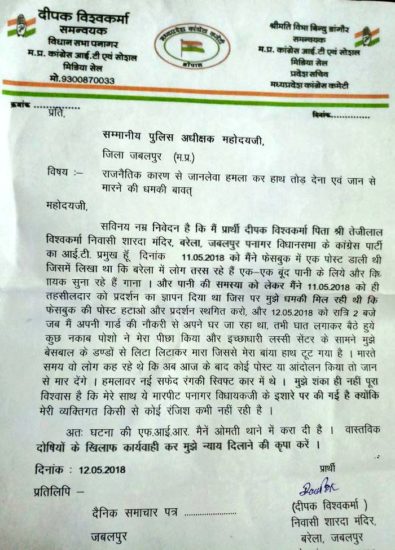 दीपक विश्वकर्मा
समन्वयक
विधान सभा पनागर
म.प्र. कांग्रेस आई.टी एवं सोशल
मिडिया सेल
मो.9300870033
श्रीमति विभा बिन्दु डांगौर
समन्वयक
म.प्र. कांग्रेस आई.टी एवं सोशल
मिडिया सेल
प्रदेश सचिव
मध्यप्रदेश कांग्रेस कमेटी
मध्यप्रदेश कांग्रेस कमेटी
भोपाल
क्रमांक
दिनांक
प्रति,
सम्मानीय पुलिस अधीक्षक महोदयजी,
जिला जबलपुर (म.प्र.)
विषय :— राजनैतिक कारण से जानलेवा हमला कर हाथ तोड देना एवं जान से
मारने की धमकी बावत्
महोदयजी,
सविनय नम्र निवेदन है कि मैं प्रार्थी दीपक विश्वकर्मा पिता श्री तेजीलाल
विश्वकर्मा निवासी शारदा मंदिर, बरेला, जबलपुर पनागर विधानसभा के कांग्रेस पार्टी
का आई.टी. प्रमुख हूँ दिनांक 11.05.2018 को मैंने फेसबुक में एक पोस्ट डाली थी
जिसमें लिखा था कि बरेला में लोग तरस रहे हैं एक–एक बूंद पानी के लिये और विध
ायक सुना रहे हैं गाना । और पानी की समस्या को लेकर मैंने 11.05.2018 को ही
तहसीलदार को प्रदर्शन का ज्ञापन दिया था जिस पर मुझे धमकी मिल रही थी कि
फेसबुक की पोस्ट हटाओ और प्रदर्शन स्थगित करो, और 12.05.2018 को रात्रि 2 बजे
जब मैं अपनी गार्ड की नौकरी से अपने घर जा रहा था, तभी घात लगाकर बैठे हुये
कुछ नकाब पोशो ने मेरा पीछा किया और इच्छाधारी लस्सी सेंटर के सामने मुझे
बेसबाल के डण्डों से लिटा लिटाकर मारा जिससे मेरा बांया हाथ टूट गया है । मारते
समय वो लोग कह रहे थे कि अब आज के बाद कोई पोस्ट या आंदोलन किया तो जान
से मार देंगे । हमलावर नई सफेद रंगकी स्विफ्ट कार में थे । मुझे शंका ही नहीं पूरा
विश्वास है कि मेरे साथ ये मारपीट पनागर विधायकजी के इशारे पर की गई है क्योंकि
मेरी व्यक्तिगत किसी से कोई रंजिश कभी नहीं रही है ।
अतः घटना की एफ.आई.आर. मैनें ओमती थाने में करा दी है । वास्तविक
दोषियों के खिलाफ कार्यवाही कर मुझे न्याय दिलाने की कृपा करें ।
दिनांक : 12.05.2018
प्रार्थी
प्रतिलिपि –
(दीपक विश्वकर्मा )
दैनिक समाचार पत्र ....................
निवासी शारदा मंदिर,
जबलपुर
बरेला, जबलपुर